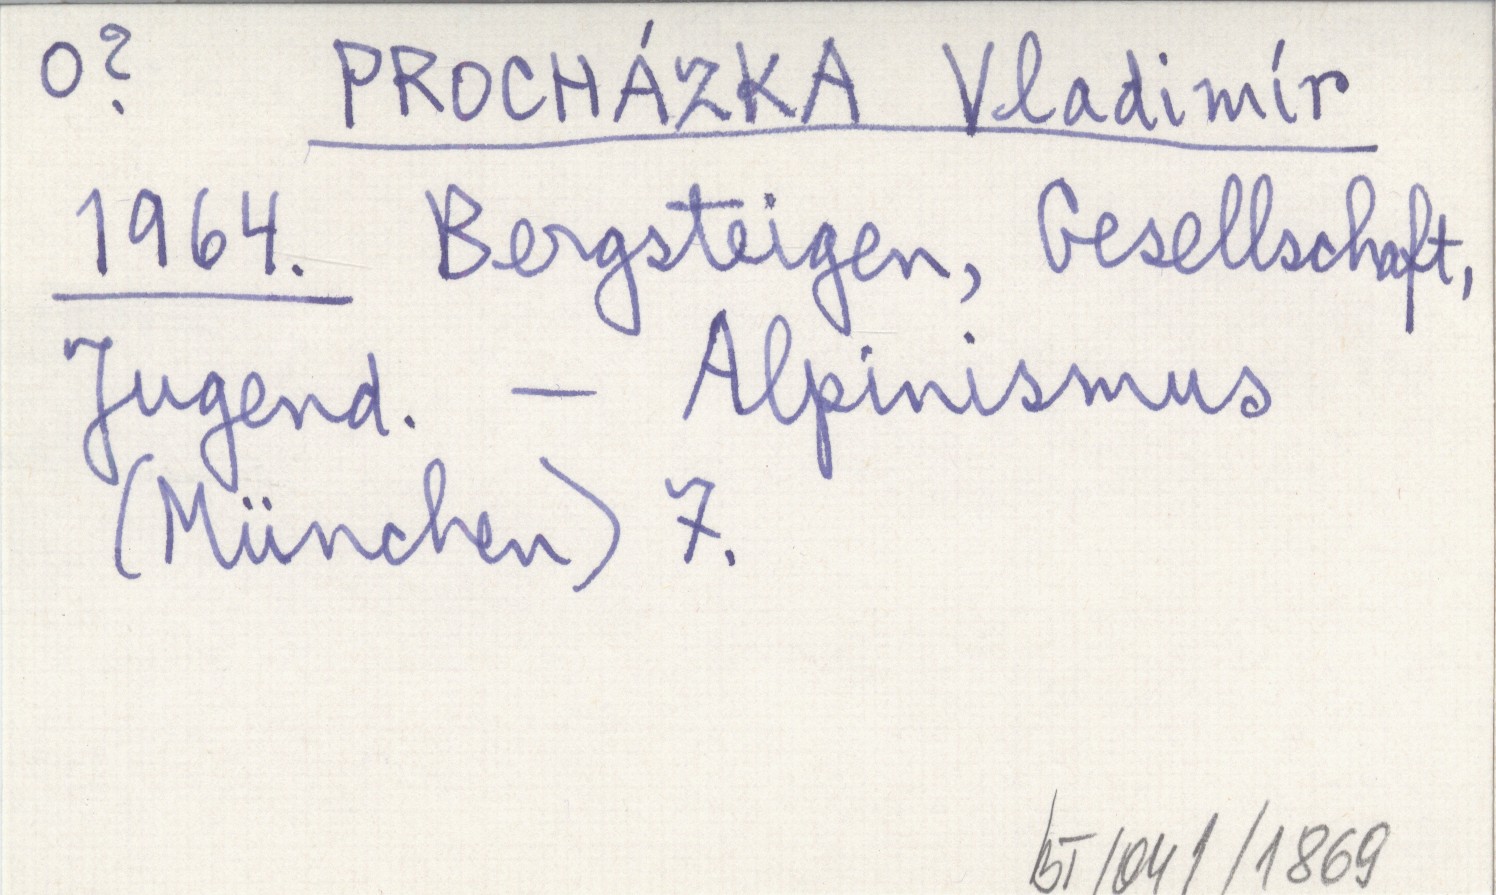 o? PROCHÁZKA Vladimír
1964. Bergsteigen, Gesellschaft,
Jugend. — Alpinismus
(München) 7.
BT/041/1869